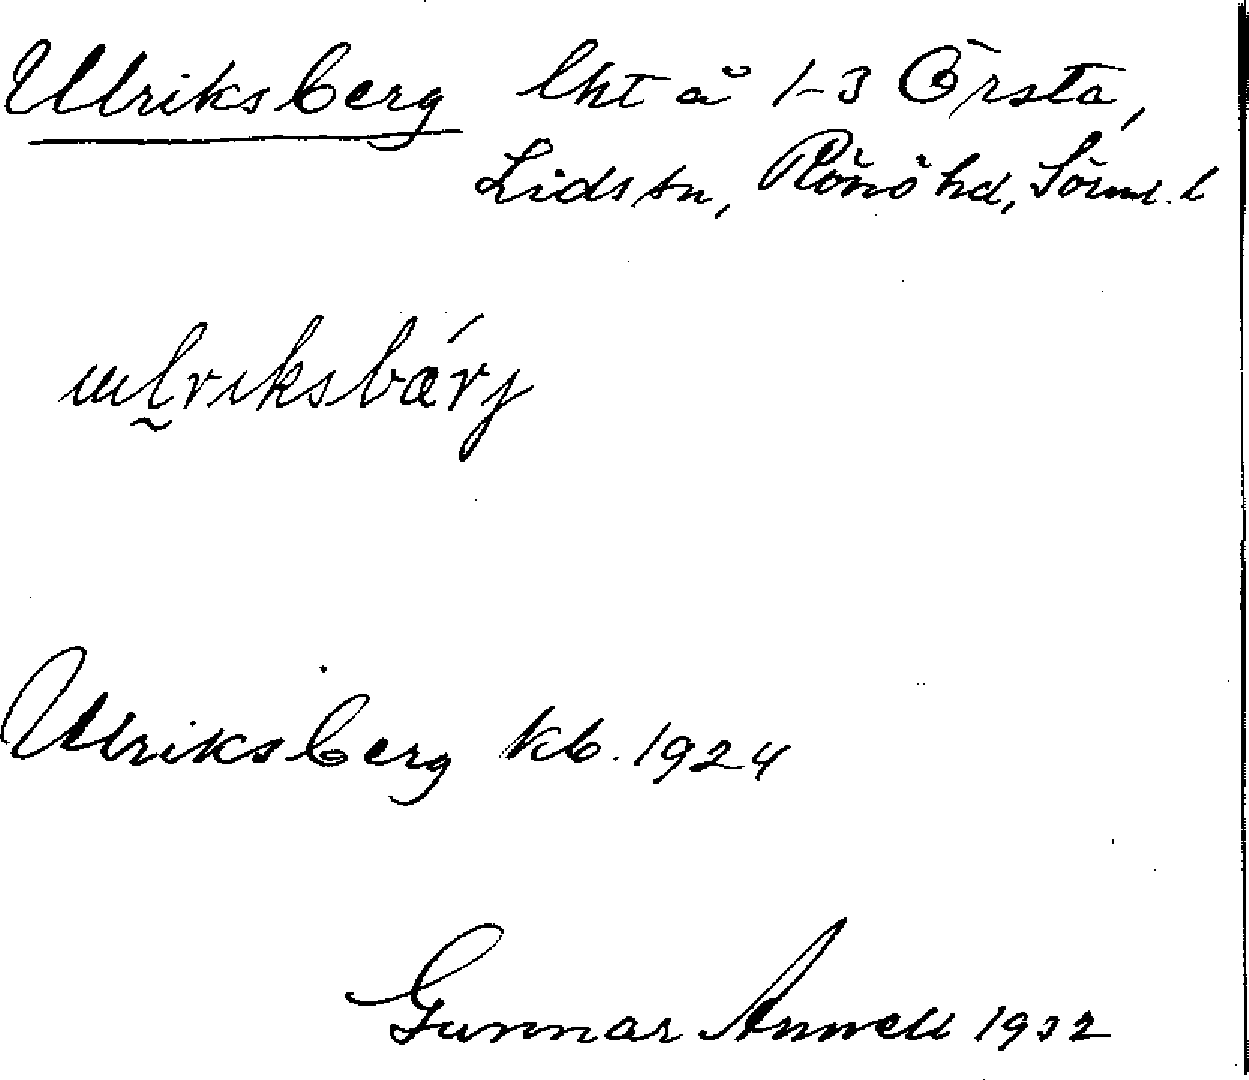 Ulriksberg lht å 1-3 Örsta,
Lids sn, Rönö hd, Sörml. l
ulriksbärj
Ulriksberg kb. 1924
Gunnar Annell 1932